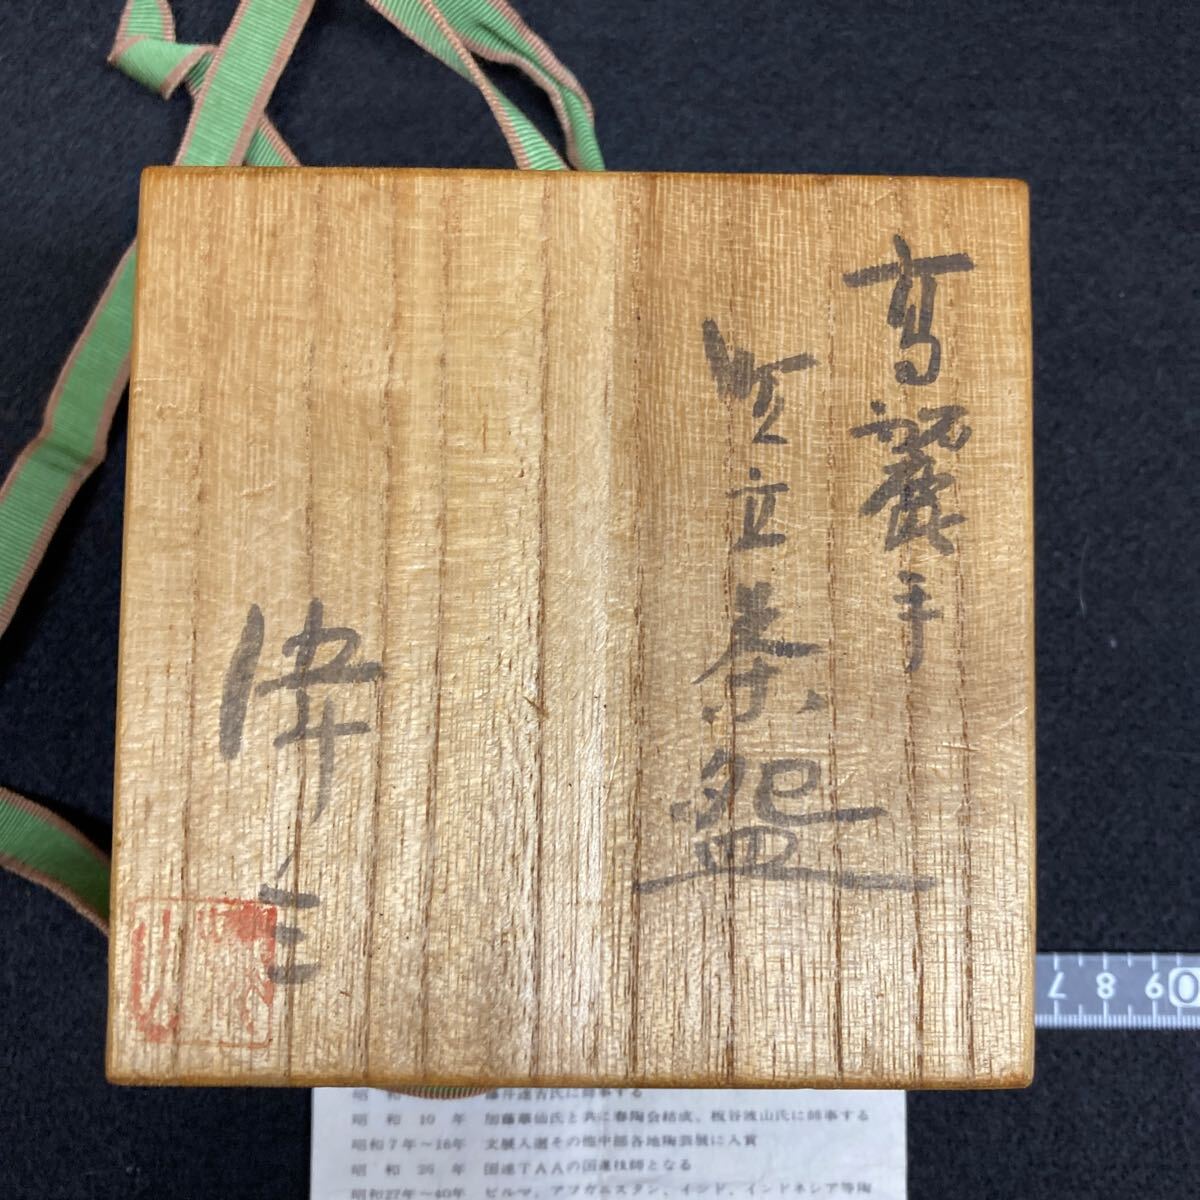 高麗手
堅立茶盌
偉三
昭和
藤井達吉氏に師事する
昭和10年 加藤華仙氏と共に春陶会結成、板谷波山氏に師事する
昭和7年～16年 文展入選その他中部各地陶芸展に入賞
昭和26年 国連TAAの国連技師となる
昭和27年～40年 ビルマ、アフガニスタン、インド、インドネシア等陶
7 8 9 10